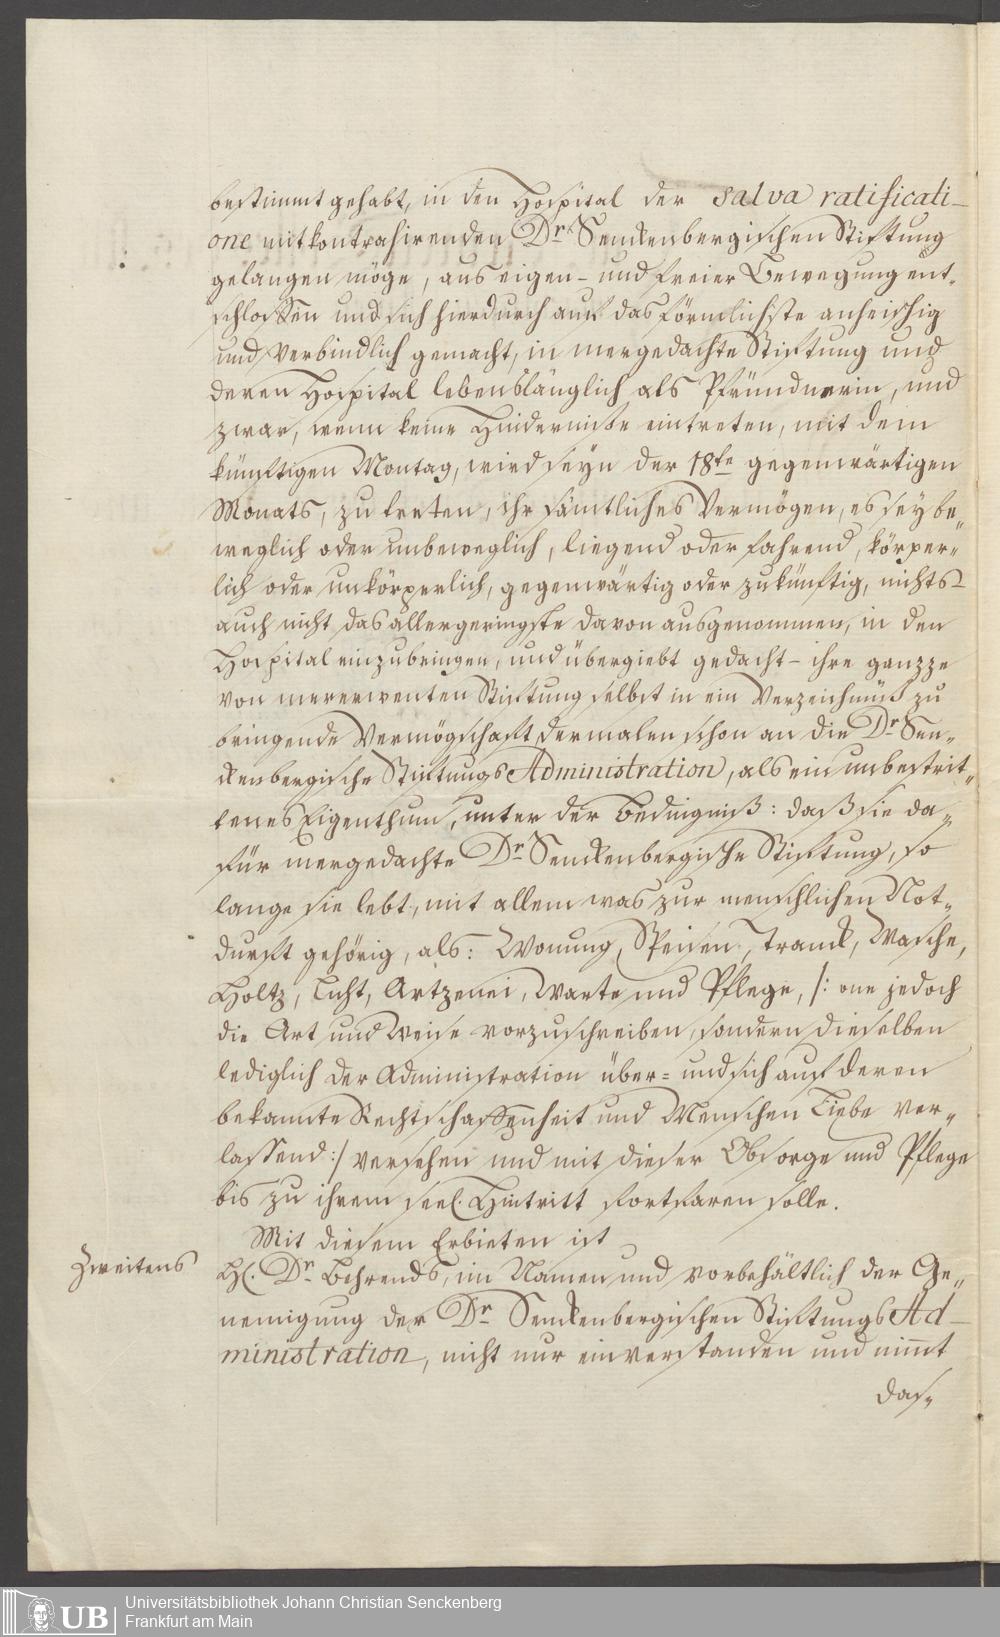 bestimmt gehabt, in den Hospital der salva ratificati-
one mitkontrahirenden Dr. Senckenbergischen Stiftung
gelangen möge, aus eigen- und freier Bewegung ent-
schlossen und sich hierdurch auf das förmlichste anheischig
und verbindlich gemacht, in mergedachte Stiftung und
deren Hospital lebenslänglich als Pfründnerin, und
zwar, wenn keine Hindernisse eintreten, mit dem
künftigen Montag, wird seyn der 18te gegenwärtigen
Monats, zu treten, ihr sämtliches Vermögen, es sey be-
weglich oder unbeweglich, liegend oder fahrend, körper-
lich oder unkörperlich, gegenwärtig oder zukünftig, nichts-
auch nicht das allergeringste davon ausgenommen, in den
Hospital einzubringen, und übergiebt gedacht- ihre ganzze
von mererwenten Stiftung selbst in ein Verzeichnüß zu
bringende Vermögschaft dermalen schon an die Dr. Sen-
ckenbergische Stiftungs Administration, als ein unbestrit-
tenes Eigenthum, unter der Bedingniß: daß sie da-
für mergedachte Dr. Senckenbergische Stiftung, so
lange sie lebt, mit allem was zur menschlichen Not-
durft gehörig, als: Wonung, Speisen, Tranck, Wasche,
Holtz, Licht, Artzenei, Warte und Pflege, /: one jedoch
die Art und Weise vorzuschreiben, sondern dieselben
lediglich der Administration über= und sich auf deren
bekannte Rechtschaffenheit und Menschen Liebe ver-
lassend :/ versehen und mit dieser Obsorge und Pflege
bis zu ihrem seel. Hintritt fortfaren solle.
Mit diesem Erbieten ist
Zweitens
H. Dr. Behrends, im Namen und vorbehältlich der Ge-
nemigung der Dr. Senckenbergischen Stiftungs Ad-
ministration, nicht nur einverstanden und nimt
das-
UB
Universitätsbibliothek Johann Christian Senckenberg
Frankfurt am Main